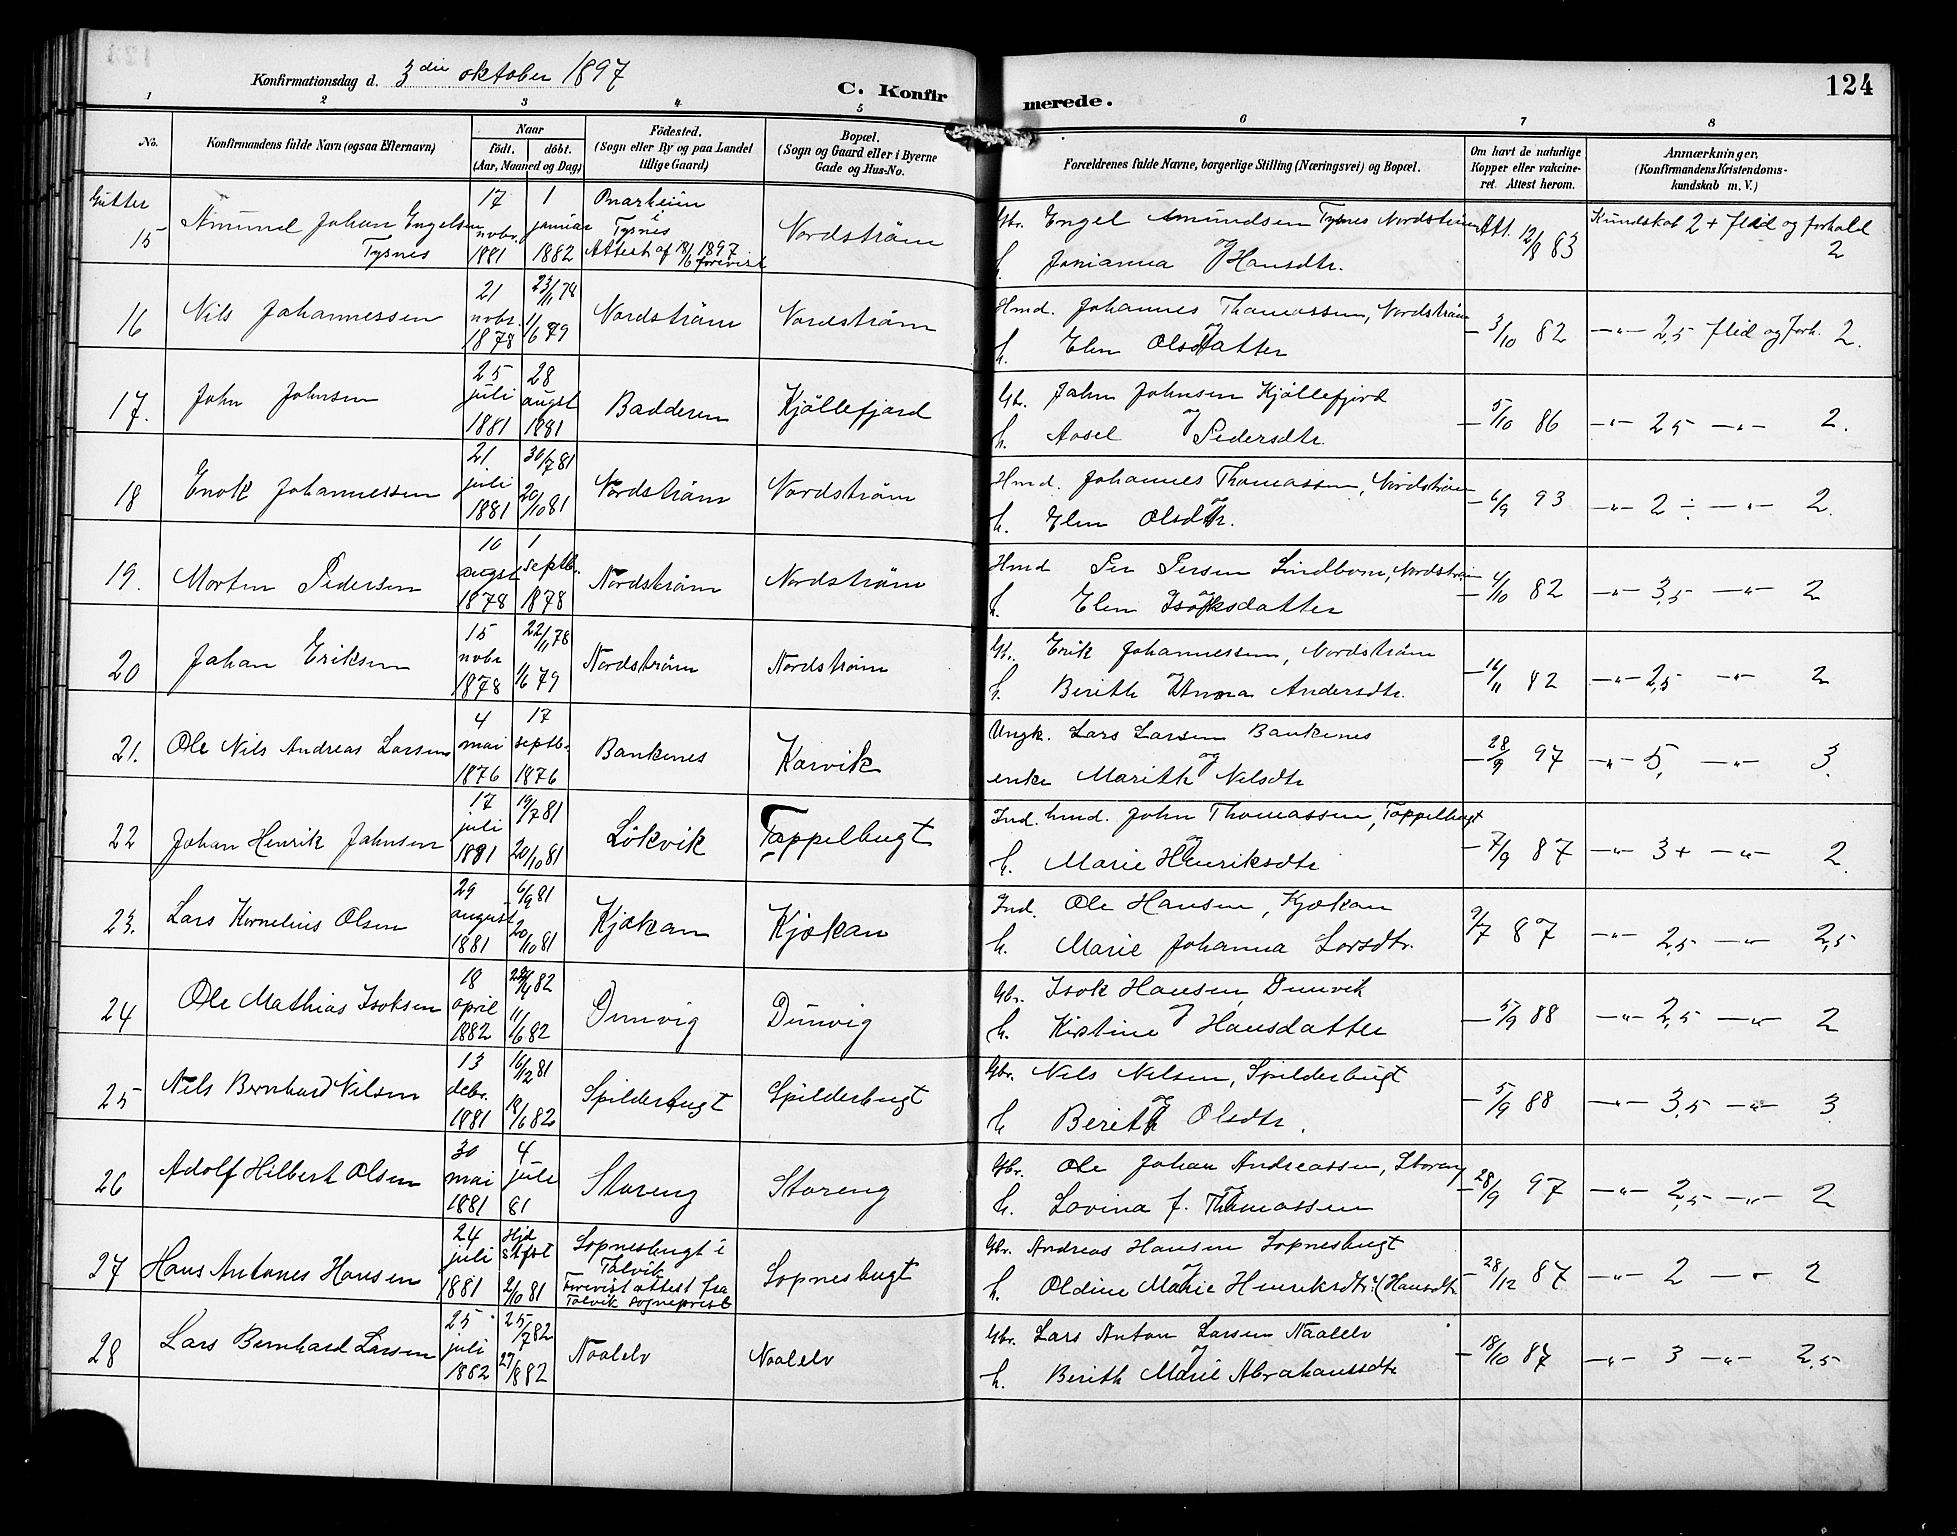 Konfirmationsdag d. 3die oktober 1897
C. Konfirmerede.
124
1 2 3 4 5 6 7 8
No.
Konfirmandens fulde Navn (ogsaa Efternavn)
Naar
født. døbt.
(Aar, Maaned og Dag)
Fødested.
(Sogn eller By og paa Landet
tillige Gaard)
Bopæl.
(Sogn og Gaard eller i Byerne
Gade og Hus-No.
Forældrenes fulde Navne, borgerlige Stilling (Næringsvei) og Bopæl.
Om havt de naturlige
Kopper eller vakcine-
ret. Attest herom.
Anmærkninger.
(Konfirmandens Kristendoms-
kundskab m. V.)
Gutter
15 Amund Johan Engelsen Tysnes
17 novbr. 1881
1 januar 1882
Onarheim i Tysnes
Attest af 18/6 1897 forevist
Nordstrøm
Gbr. Engel Amundsen Tysnes Nordstrøm
og
h. Josianna Hansdtr.
Att. 12/8 83
Kundskab 2+ flid og forhold 2
16 Nils Johannessen
21 novbr. 1878
23/11 78 1/6 79
Nordstrøm
Nordstrøm
Hmd. Johannes Thomassen, Nordstrøm
og
h. Elen Olsdatter
— 3/10 82
—"— 2,5 flid og Forh. 2.
17. John Johnsen
25 juli 1881
28 augst 1881
Badderen
Kjøllefjord
Gbr. John Johnsen Kjøllefjord
og
h. Aosel Pedersdtr.
— 5/10 86
—"— 2,5 —"— 2.
18 Enok Johannessen
21 juli 1881
30/7 81 20/10 81
Nordstrøm
Nordstrøm
Hmd. Johannes Thomassen, Nordstrøm
og
h. Elen Olsdtr.
— 6/9 93
—"— 2 ÷ —"— 2.
19. Morten Pedersen
10 augst 1878
1 septb. 1878
Nordstrøm
Nordstrøm
Hmd Per Persen Lindbom, Nordstrøm
og
h. Elen Isaksdatter
— 4/10 82
—"— 3,5 —"— 2
20 Johan Eriksen
15 novbr 1878
22/11 78 1/6 79
Nordstrøm
Nordstrøm
Gbr. Erik Johannessen, Nordstrøm
og
h. Berith Anna Andersdtr.
— 16/11 82
—"— 2,5 —"— 2
21. Ole Nils Andreas Larsen
4 mai 1876
17 septb. 1876
Bankenes
Korvik
Ungk. Lars Larsen Bankenes
og
enke Marith Nilsdtr
— 28/9 97
—"— 5, —"— 3.
22 Johan Henrik Johnsen
17 juli 1881
19/7 81 20/10 81
Løkvik
Tappelbugt
Ind. hmd. John Thomassen, Tappelbugt
og
h. Marie Henriksdtr
— 7/9 87
—"— 3+ —"— 2.
23. Lars Kornelius Olsen
29 august 1881
6/9 81 20/10 81
Kjækan
Kjækan
Ind. Ole Hansen, Kjækan
h. Marie Johanna Larsdtr.
9/7 87
—"— 2,5 —"— 2,5
24 Ole Mathias Isaksen
18 april 1882
11/6 82
Dunvig
Dunvig
Gbr. Isak Hansen, Dunvik
og
h. Kirstine Hansdatter
— 5/9 88
—"— 2,5 —"— 2
25 Nils Bernhard Nilsen
13 debr. 1881
16/12 81 18/6 82
Spilderbugt
Spilderbugt
Gbr. Nils Nilsen, Spilderbugt
og
h Berith Olsdtr.
— 5/9 88
—"— 3,5 —"— 3
26 Adolf Hilbert Olsen
30 mai 1881
4 jule 81
Storeng
Storeng
Gbr. Ole Johan Andreassen, Storeng
og
h. Lovina f. Thomassen
— 28/9 97
—"— 2,5 —"— 2
27 Hans Antones Hansen
24 juli 1881
Hjd stfst 2/10 81
Sopnesbugt i Talvik
Forevist attest fra
Talvik sogneprest
Sopnesbugt
Gbr. Andreas Hansen Sopnesbugt
og
h. Oldine Marie Henriksdtr. (Hansdtr
— 28/12 87
—"— 2 —"— 2
28 Lars Bernhard Larsen
25 juli 1882
25/7 82 27/8 82
Naalelv
Naalelv
Gbr. Lars Anton Larsen Naalelv
og
h. Berith Marie Abrahamsdtr
— 18/10 87
—"— 3 —"— 2,5